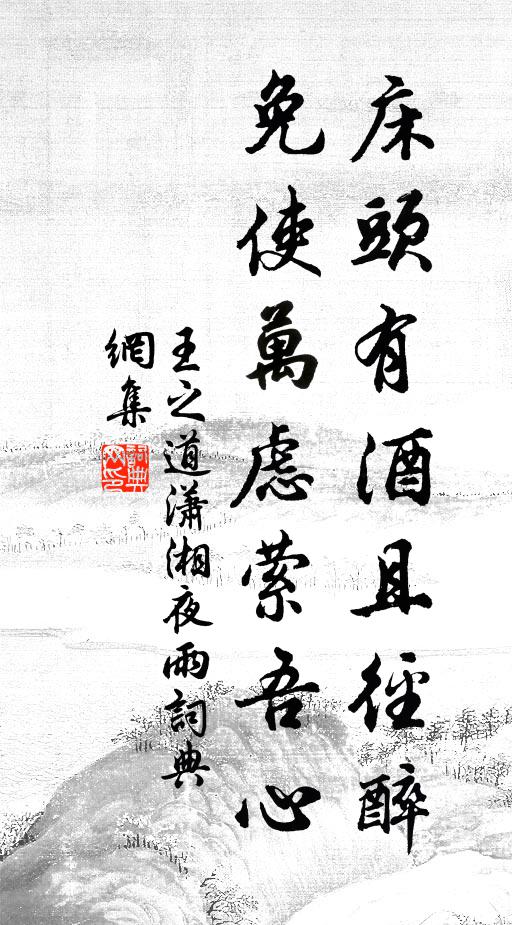 床頭有酒且徑醉
免使萬慮縈吾心
王之道瀟湘夜雨詞典
網集
詞典網印